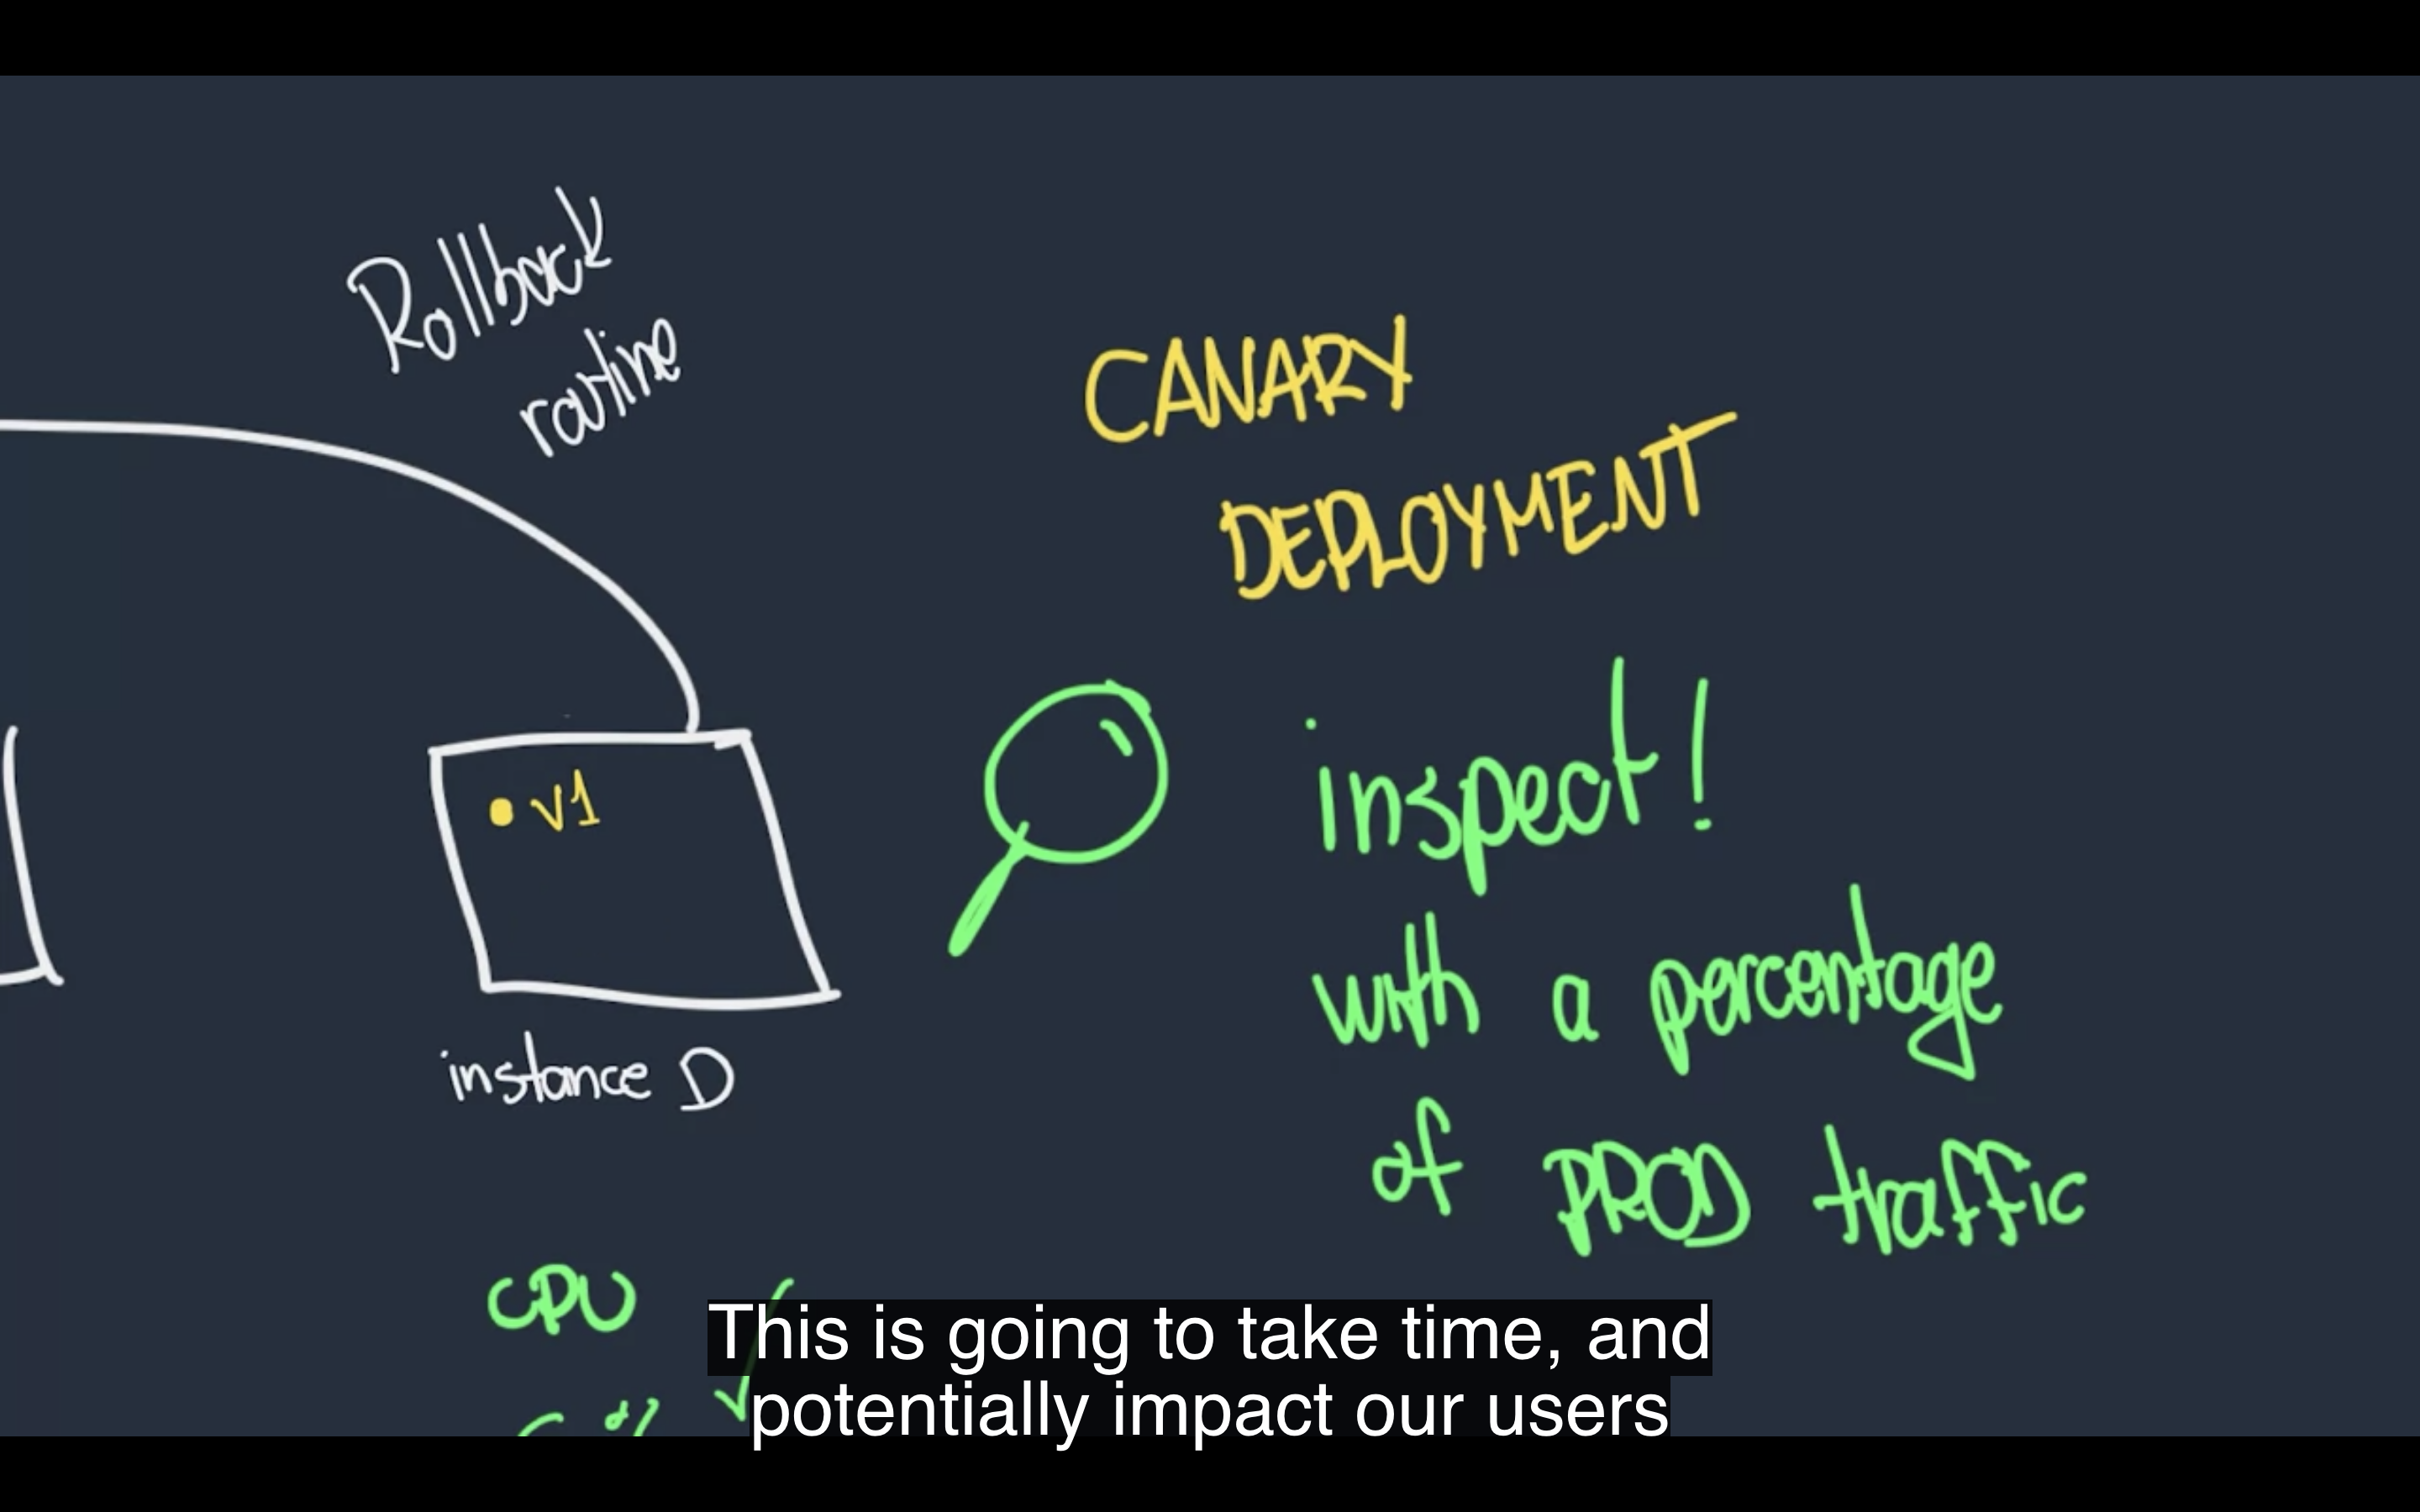 Rollback
routine
CANARY
DEPLOYMENT
inspect!
with a percentage
of PROD traffic
• v1
instance D
CPU
This is going to take time, and
potentially impact our users